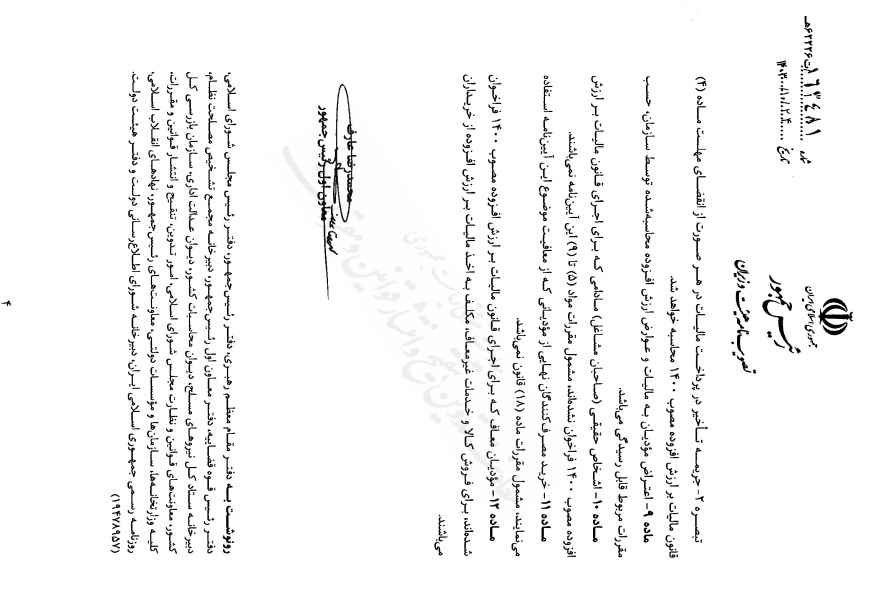 جمهوری اسلامی ایران
رئیس جمهور
تصویب نامه هیئت وزیران
شماره ۱۶۳۴۸۱/ت۶۲۲۲۶هـ
تاریخ ۱۴۰۳/۱۰/۲۰۴
تبصره ۲- جریمه تأخیر در پرداخت مالیات در هر صورت از انقضای مهلت ماده (۴)
قانون مالیات بر ارزش افزوده مصوب ۱۴۰۰ محاسبه خواهد شد.
ماده ۹- اعتراض مؤدیان به مالیات و عوارض ارزش افزوده محاسبه‌شده توسط سازمان، حسب
مقررات مربوط قابل رسیدگی می‌باشد.
ماده ۱۰- اشخاص حقیقی (صاحبان مشاغل) مادامی که برای اجرای قانون مالیات بر ارزش
افزوده مصوب ۱۴۰۰ فراخوان نشده‌اند، مشمول مقررات مواد (۵) تا (۹) این آیین‌نامه نمی‌باشند.
ماده ۱۱- خرید مصرف‌کنندگان نهایی از مؤدیانی که از معافیت موضوع این آیین‌نامه استفاده
می‌نمایند، مشمول مقررات ماده (۱۸) قانون نمی‌باشد.
ماده ۱۲- مؤدیان معاف که برای اجرای قانون مالیات بر ارزش افزوده مصوب ۱۴۰۰ فراخوان
شده‌اند، برای فروش کالا و خدمات غیرمعاف، مکلف به اخذ مالیات بر ارزش افزوده از خریداران
می‌باشند.
محمدرضا عارف
معاون اول رئیس جمهور
رونوشت به دفتر مقام معظم رهبری، دفتر رئیس جمهور، دفتر رئیس مجلس شورای اسلامی،
دفتر رئیس قوه قضاییه، دفتر معاون اول رئیس جمهور، دبیرخانه مجمع تشخیص مصلحت نظام،
دبیرخانه ستاد کل نیروهای مسلح، دیوان محاسبات کشور، دیوان عدالت اداری، سازمان بازرسی کل
کشور، معاونت‌های قوانین و نظارت مجلس شورای اسلامی، امور تدوین، تنقیح و انتشار قوانین و مقررات،
کلیه وزارتخانه‌ها، سازمان‌ها و مؤسسات دولتی، معاونت‌های رئیس جمهور، نهادهای انقلاب اسلامی،
روزنامه رسمی جمهوری اسلامی ایران، دبیرخانه شورای اطلاع‌رسانی دولت و دفتر هیئت دولت.
(۱۹۴۷۸۹۵۷)
۴